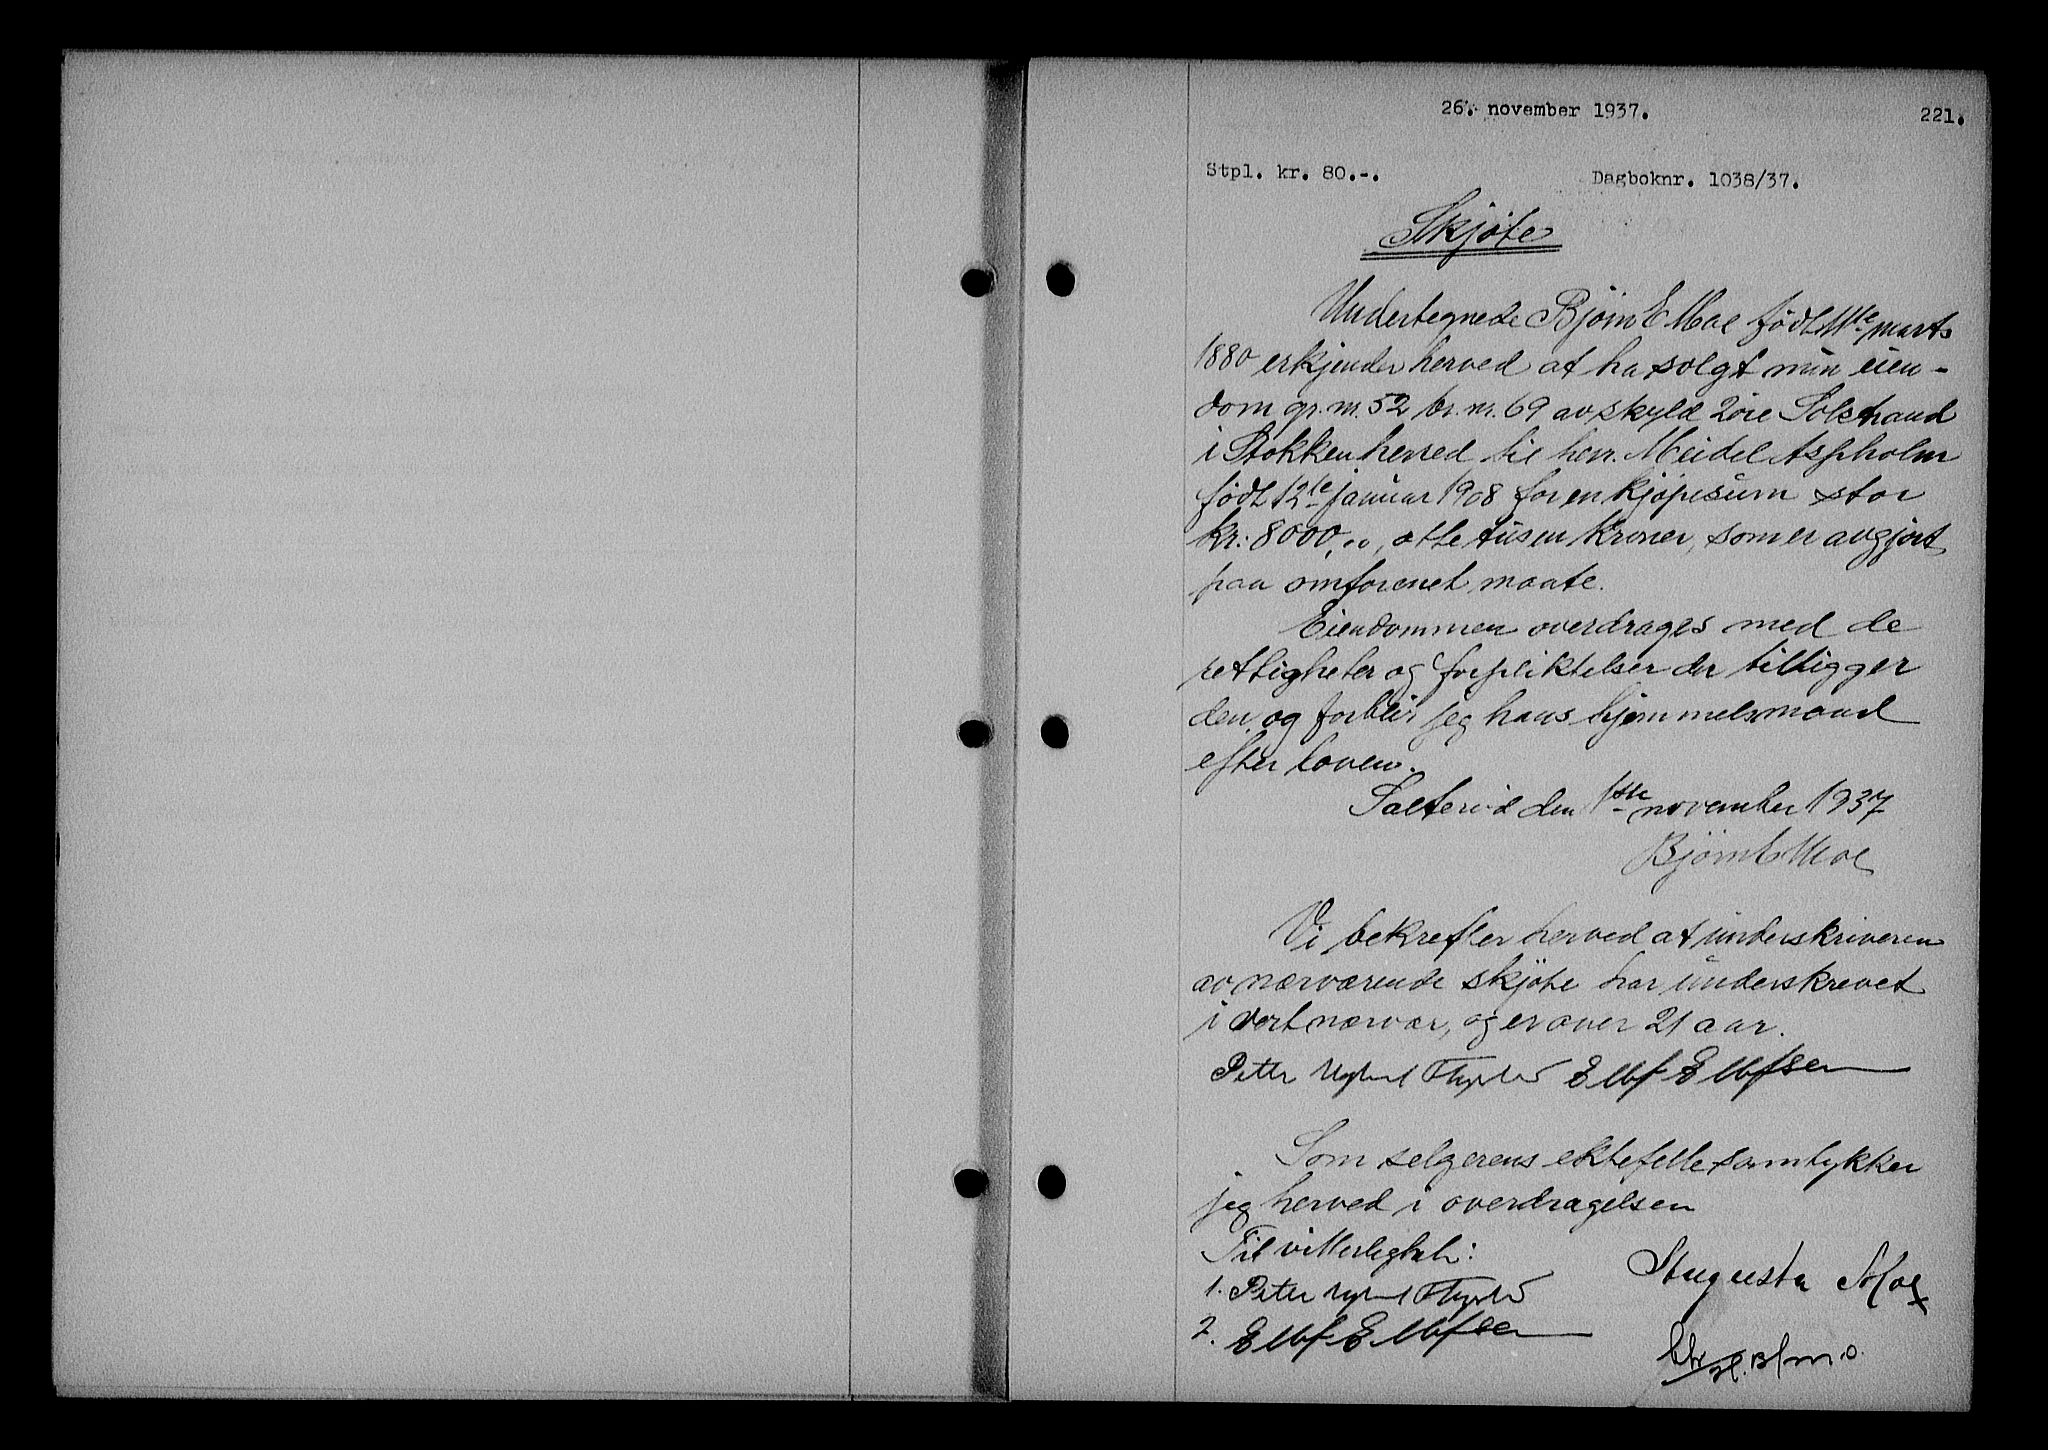 26. november 1937.
221.
Stpl. kr. 80.-.
Dagboknr. 1038/37.
Skjøte
Undertegnede Bjørn E Moe født 11te marts
1880 erkjender herved at ha solgt min eien-
dom gr. nr. 52 br. nr. 69 av skyld 2 øre Solstrand
i Stokken herred til herr. Meidel Aspholm
født 12te januar 1908 for en kjøpesum stor
kr: 8000,00, otte tusen kroner, som er avgjort
paa omforenet maate.
Eiendommen overdrages med de
rettigheter og forpliktelser der tilligger
den, og forblir jeg hans hjemmelsmand
efter loven.
Salterød den 1ste november 1937
Bjørn E Moe
Vi bekrefter herved at underskriveren
av nærværende skjøte har underskrevet
i vort nærvær, og er over 21 aar.
Peter Ellef Ellefsen
Som selgerens ektefelle samtykker
jeg herved i overdragelsen
Til vitterlighet:
Augusta Moe
1. Peter
2. Ellef Ellefsen